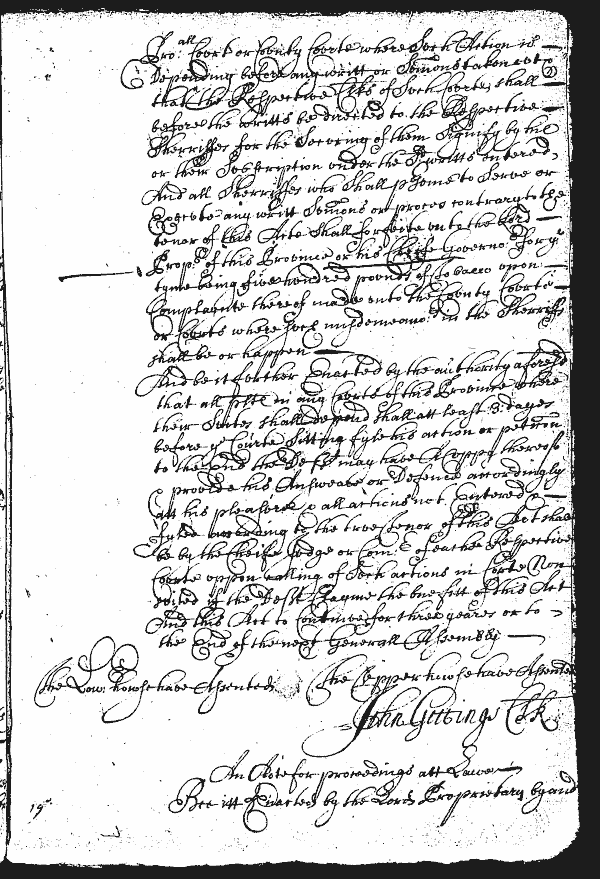 Pro: all Court or County Courte where Such Action is
Depending before any writt or Somons taken out &
that the Respective Clks of Such Courtes shall
before the writts be directed to the Respective
Sherriffes for the Serving of them Signify by his
or their Subscription under the writts entered,
And all Sherriffes who Shall p'sume to Serve or
Execute any writt Somons or proces contrary to the
tenor of this Acte Shall forfeite unto the Lord
Prop:ry of this Province or his Cheife Governo:r for ye
tyme being five hundred pounds of Tobacco upon
Complaynte thereof made unto the County Courte
or Courts where such misdemeano:r in the Sherriffe
shall be or happen
And be it further Enacted by the authority aforesd
that all plts in any Courte of this Province where
their Suites shall depend shall att least 3: dayes
before ye Courte Sitting fyle his action or petition
to the End the Deft may have A Coppy thereof
& provide his Answeare or Defence accordingly
att his pleasure & all actions not Entered &
fyled according to the true tenor of this Act shall
be by the Cheife Judge or Com:r of eather Respective
Courte uppon calling of Such actions in Courte Non
suited if the Deft Clayme the benefitt of this Act
And this Act to Continue for three yeares or to
the End of the next Generall Assembly
The Low: howse have Assented
The Upper howse have Assented
John Gittings Clk
An Acte for proceedings att Lawe
Bee itt Enacted by the Lord Proprietary by and
19